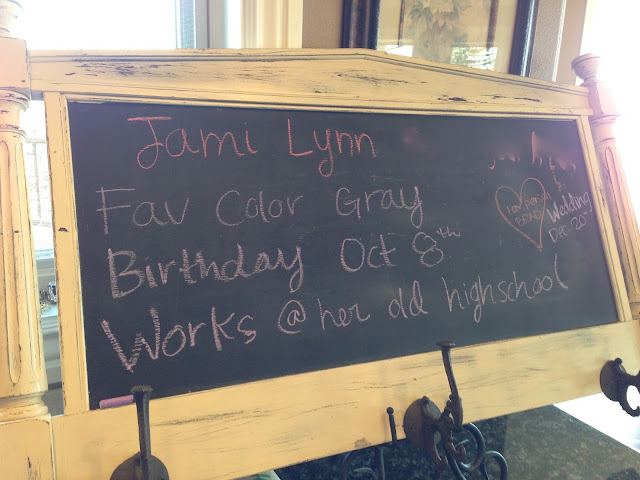 Jami Lynn
Fav Color Gray
Birthday Oct 8th
Works @ her old highschool
Wedding
Dec 20th